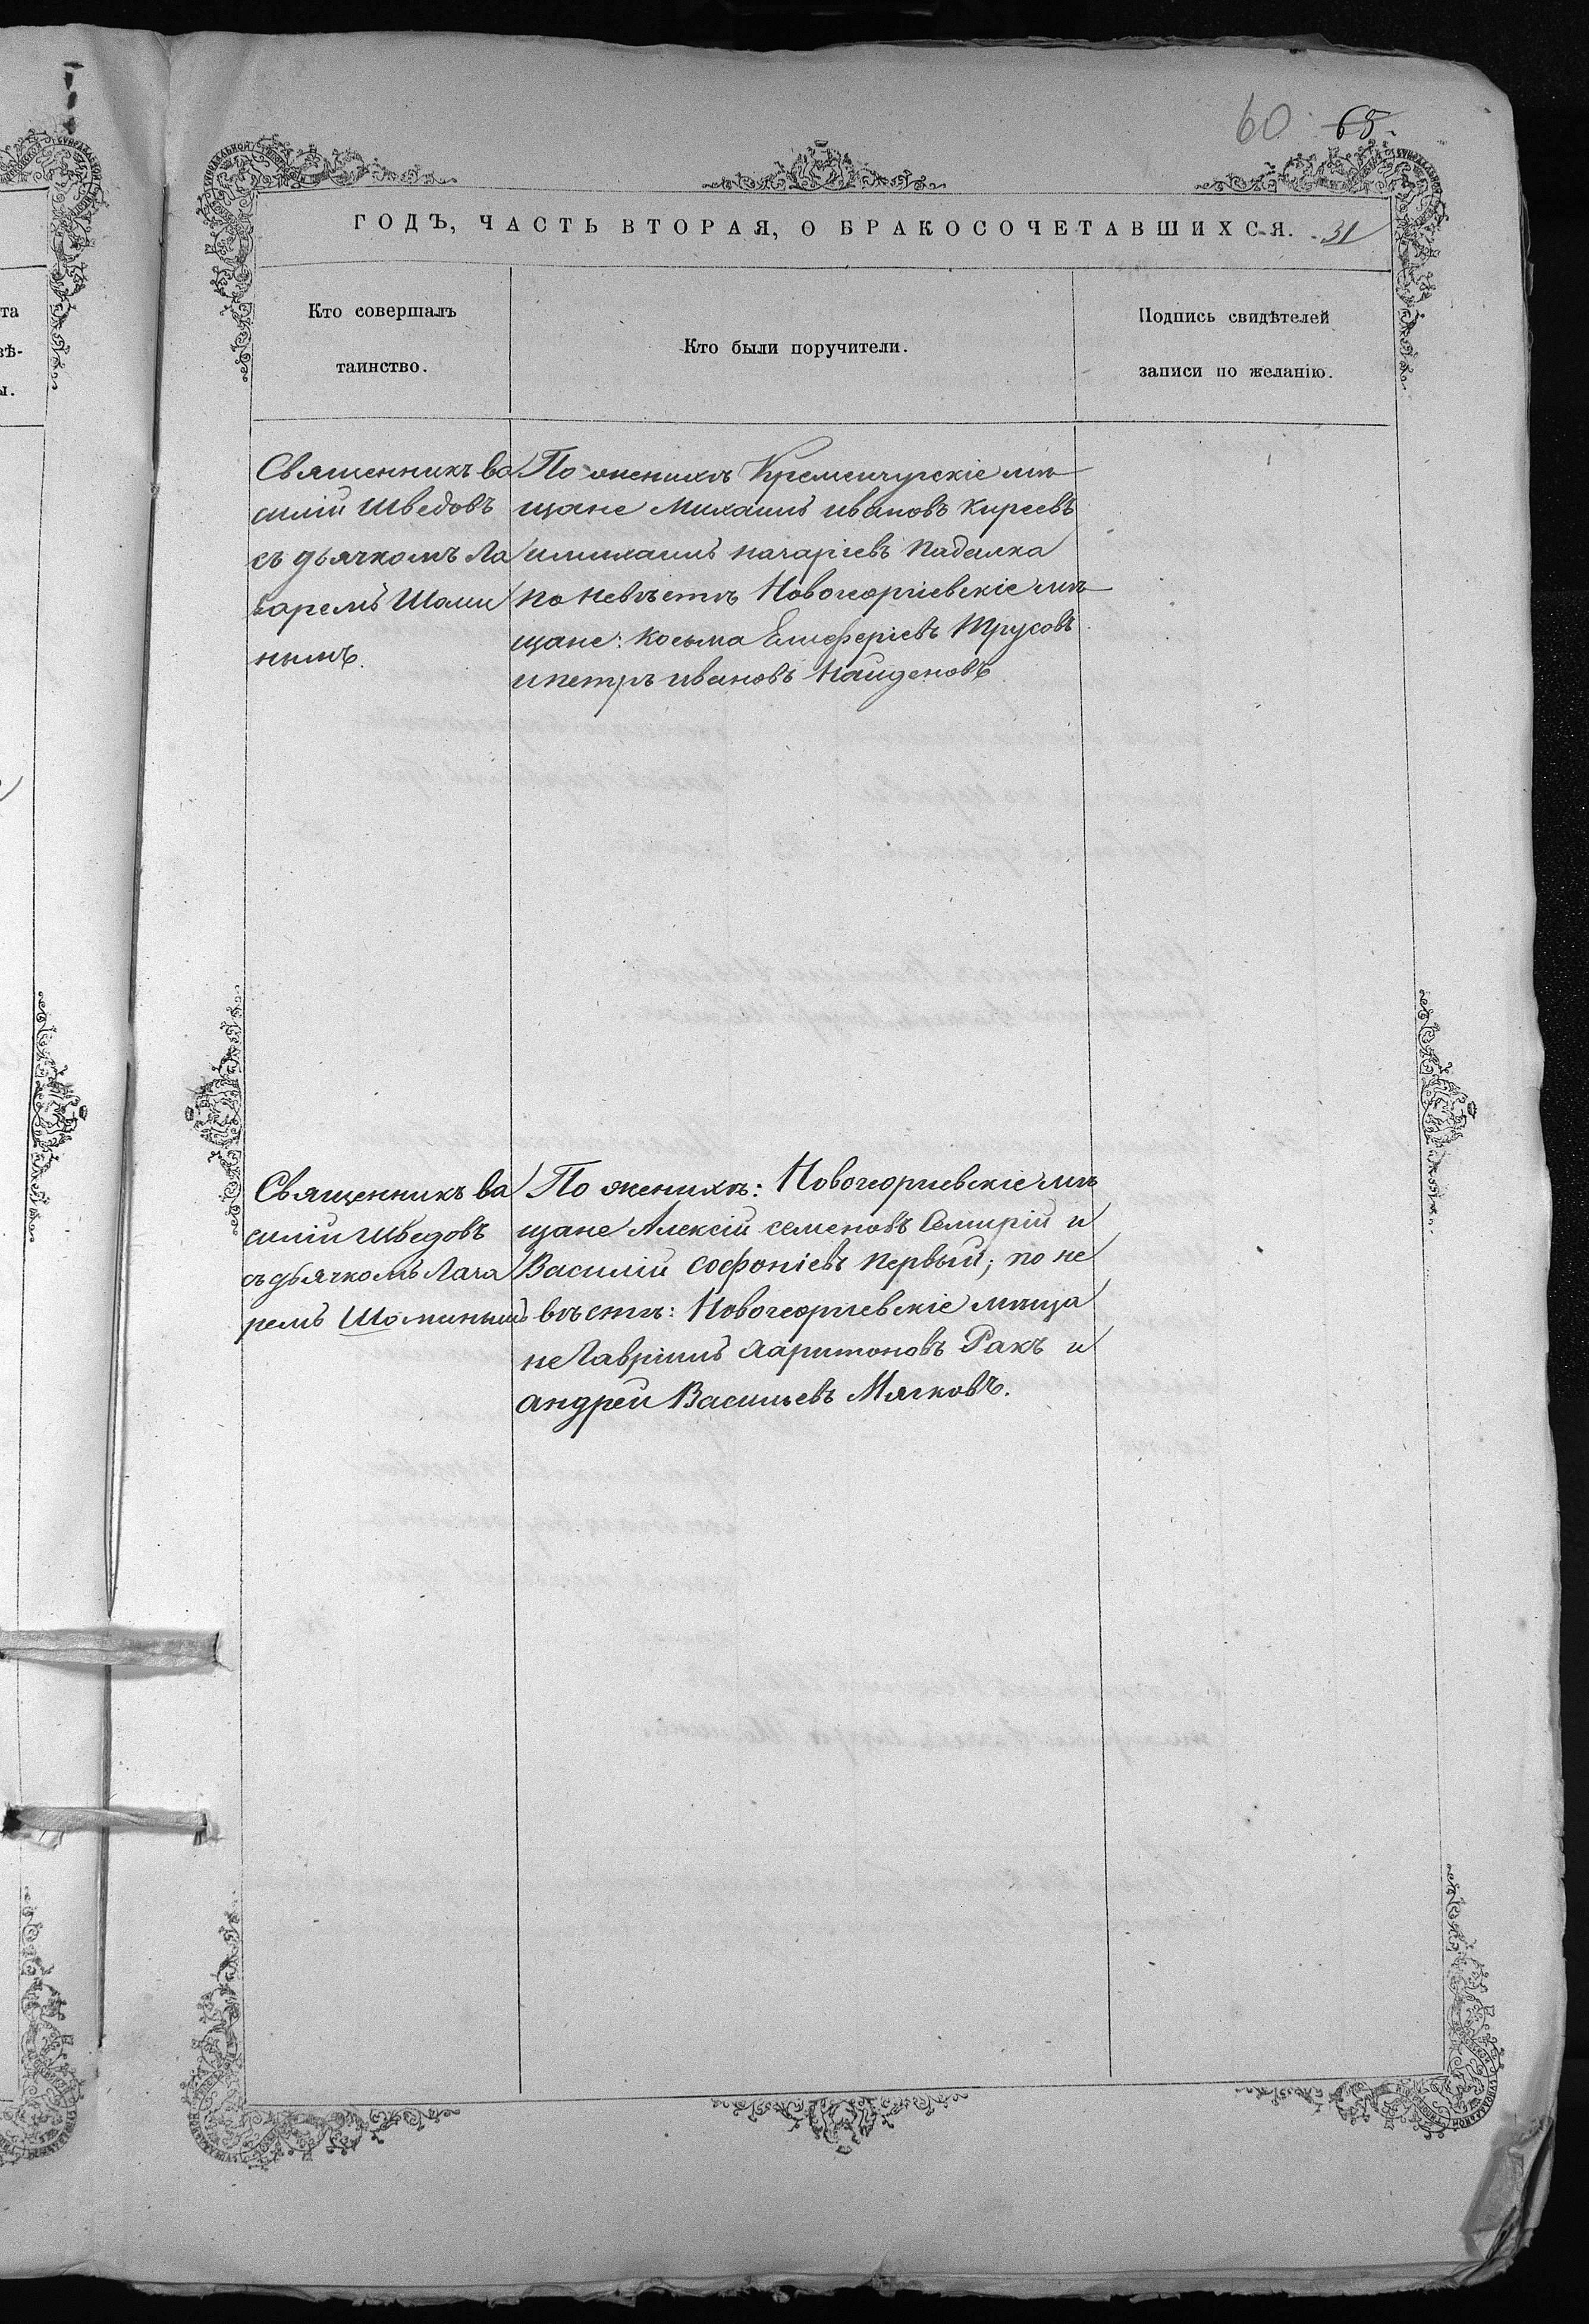 60 65.
ГОДЪ, ЧАСТЬ ВТОРАЯ, О БРАКОСОЧЕТАВШИХСЯ. 31
Кто совершалъ
таинство.
Кто были поручители.
Подпись свидѣтелей
записи по желанію.
Священникъ ва
силій Шведовъ
съ дьячкомъ Ла
заремъ Шами
нымъ.
По женихѣ Кременчугскіе мѣ
щане Михаилъ ивановъ Киреевъ
имихаилъ Падалка
по невѣстѣ Новогеоргіевскіе мѣ
щане: Косьма Елеферіевъ Трусовъ
ипетръ ивановъ Найденовъ
Священникъ ва
силій Шведовъ
съ дьячкомъ Лаза
ремъ Шоминымъ
По женихѣ: Новогеоргіевскіе мѣ
щане Алексій семеновъ Семирій и
Василій Софоніевъ Первый; по не
вѣстѣ: Новогеоргіевскіе мѣща
не Гавріилъ Харитоновъ Ракъ и
андрей Васильевъ Мягковъ.